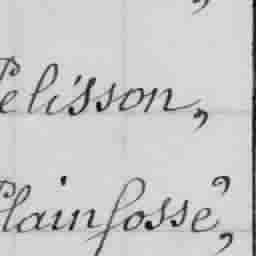 Pelisson,
Plainfosse,